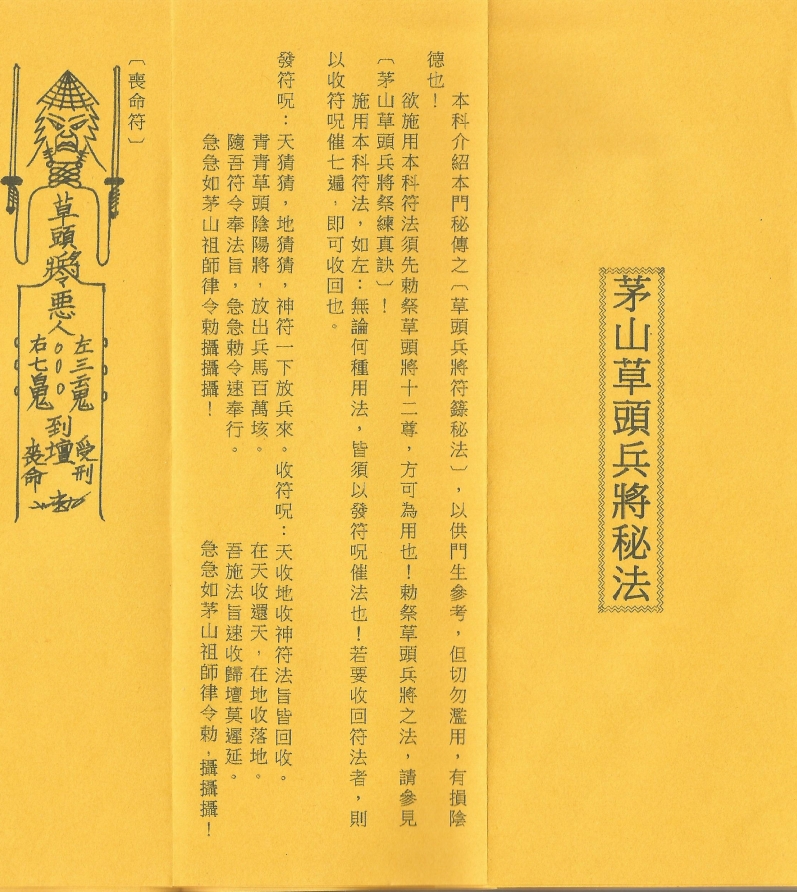 茅山草頭兵將秘法
本科介紹本門秘傳之〔草頭兵將符籙秘法〕，以供門生參考，但切勿濫用，有損陰
德也！
欲施用本科符法須先勅祭草頭將十二尊，方可為用也！勅祭草頭兵將之法，請參見
〔茅山草頭兵將祭練真訣〕！
施用本科符法，如左：無論何種用法，皆須以發符呪催法也！若要收回符法者，則
以收符呪催七遍，即可收回也。
發符呪：天猜猜，地猜猜，神符一下放兵來。收符呪：天收地收神符法旨皆回收。
青青草頭陰陽將，放出兵馬百萬垓。在天收還天，在地收落地。
隨吾符令奉法旨，急急勅令速奉行。吾施法旨速收歸壇莫遲延。
急急如茅山祖師律令勅攝攝攝！急急如茅山祖師律令勅，攝攝攝！
〔喪命符〕
草頭將令惡人
左三云鬼
右七鬼
到壇
受刑
喪命